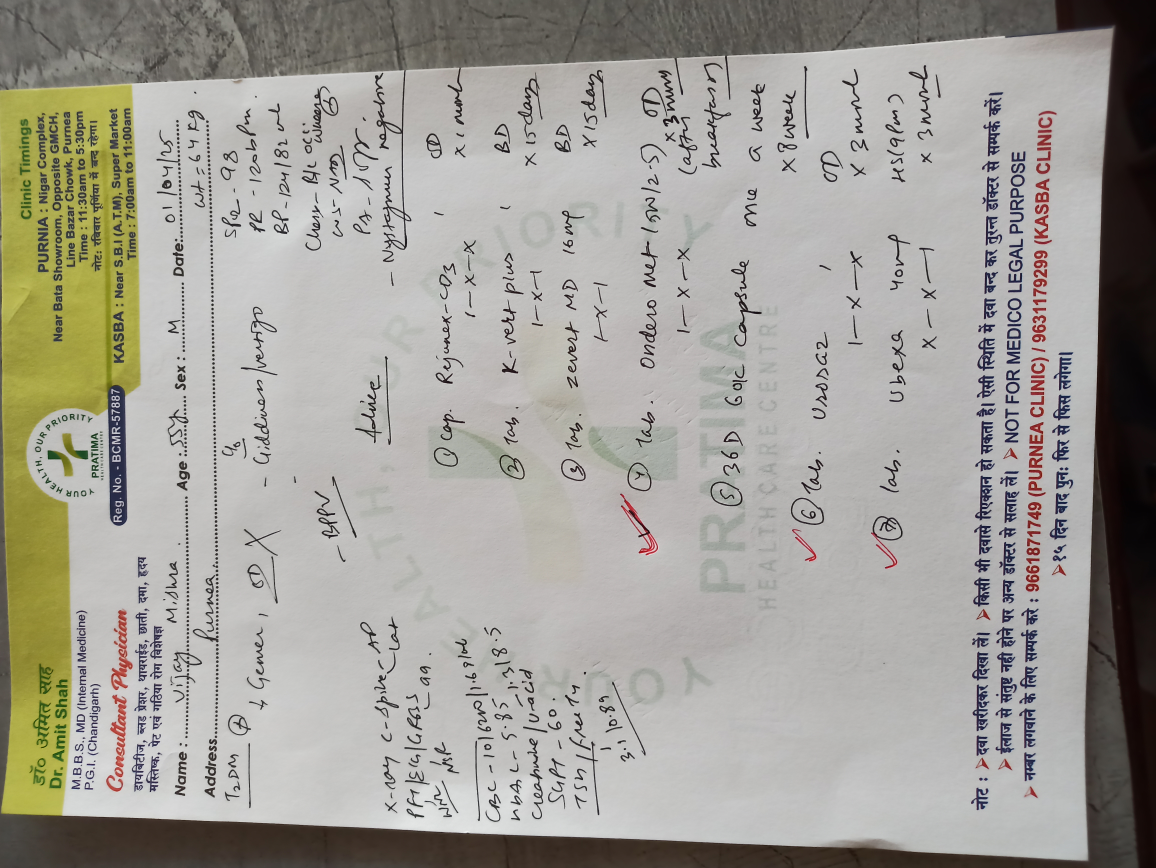 डॉ० अमित साह
Dr. Amit Shah
M.B.B.S., MD (Internal Medicine)
P.G.I. (Chandigarh)
Consultant Physician
डायबिटीज, ब्लड प्रेशर, थायराईड, छाती, दमा, हृदय
मस्तिष्क, पेट एवं गठिया रोग विशेषज्ञ
YOUR HEALTH, OUR PRIORITY
PRATIMA
Reg. No. - BCMR-57887
Clinic Timings
PURNIA : Nigar Complex,
Near Bata Showroom, Opposite GMCH,
Line Bazar Chowk, Purnea
Time : 11:30am to 5:30pm
नोट: रविवार पूर्णिया में बन्द रहेगा।
KASBA : Near S.B.I (A.T.M), Super Market
Time : 7:00am to 11:00am
Name : Vijay Mishra Age : 55y Sex : M Date: 01/04/25
Address Purnea
Wt = 64 kg.
T2DM
Gemer 1 OD X
- Giddiness/vertigo
- BPPV
SPO2 - 98
PR - 120 bpm
BP - 124/82
Chest - B/L occ. wheeze
PA -
- Nystagmus negative
X-ray C-Spine - AP Lat
PFT/ECG/GRBS
NSR
CBC - 10/6200/1.69 lakh
HbA1C - 5.85
Creatinine/U-acid - 1.3/8.5
SGPT - 60.
TSH/freeT4.
3.1/0.89
Advice
① Cap. Rejunex-CD3 1 OD
1-X-X x 1 month
② Tab. K-vert plus 1 BD
1-X-1 x 15 days
③ Tab. Zevert MD 16 mg BD
1-X-1 x 15 days
④ Tab. Ondero met (500/2.5) OD
1-X-X x 3 month
(after breakfast)
⑤ D3 60K Capsule one a week
x 8 week
⑥ Tab. Ursodaz 1 OD
1-X-X x 3 month
⑦ Tab. Ubexa 40mg HS (9pm)
X-X-1 x 3 month
YOUR HEALTH, OUR PRIORITY
PRATIMA
HEALTHCARE CENTRE
नोट : ➤ दवा खरीदकर दिखा लें। ➤ किसी भी दवासे रिएक्शन हो सकता है। ऐसी स्थिति में दवा बन्द कर तुरन्त डॉक्टर से सम्पर्क करें।
➤ ईलाज से संतुष्ट नही होने पर अन्य डॉक्टर से सलाह लें। ➤ NOT FOR MEDICO LEGAL PURPOSE
➤ नम्बर लगवाने के लिए सम्पर्क करे : 9661871749 (PURNEA CLINIC) / 9631179299 (KASBA CLINIC)
➤ १५ दिन बाद पुनः फिर से फिस लगेगा।